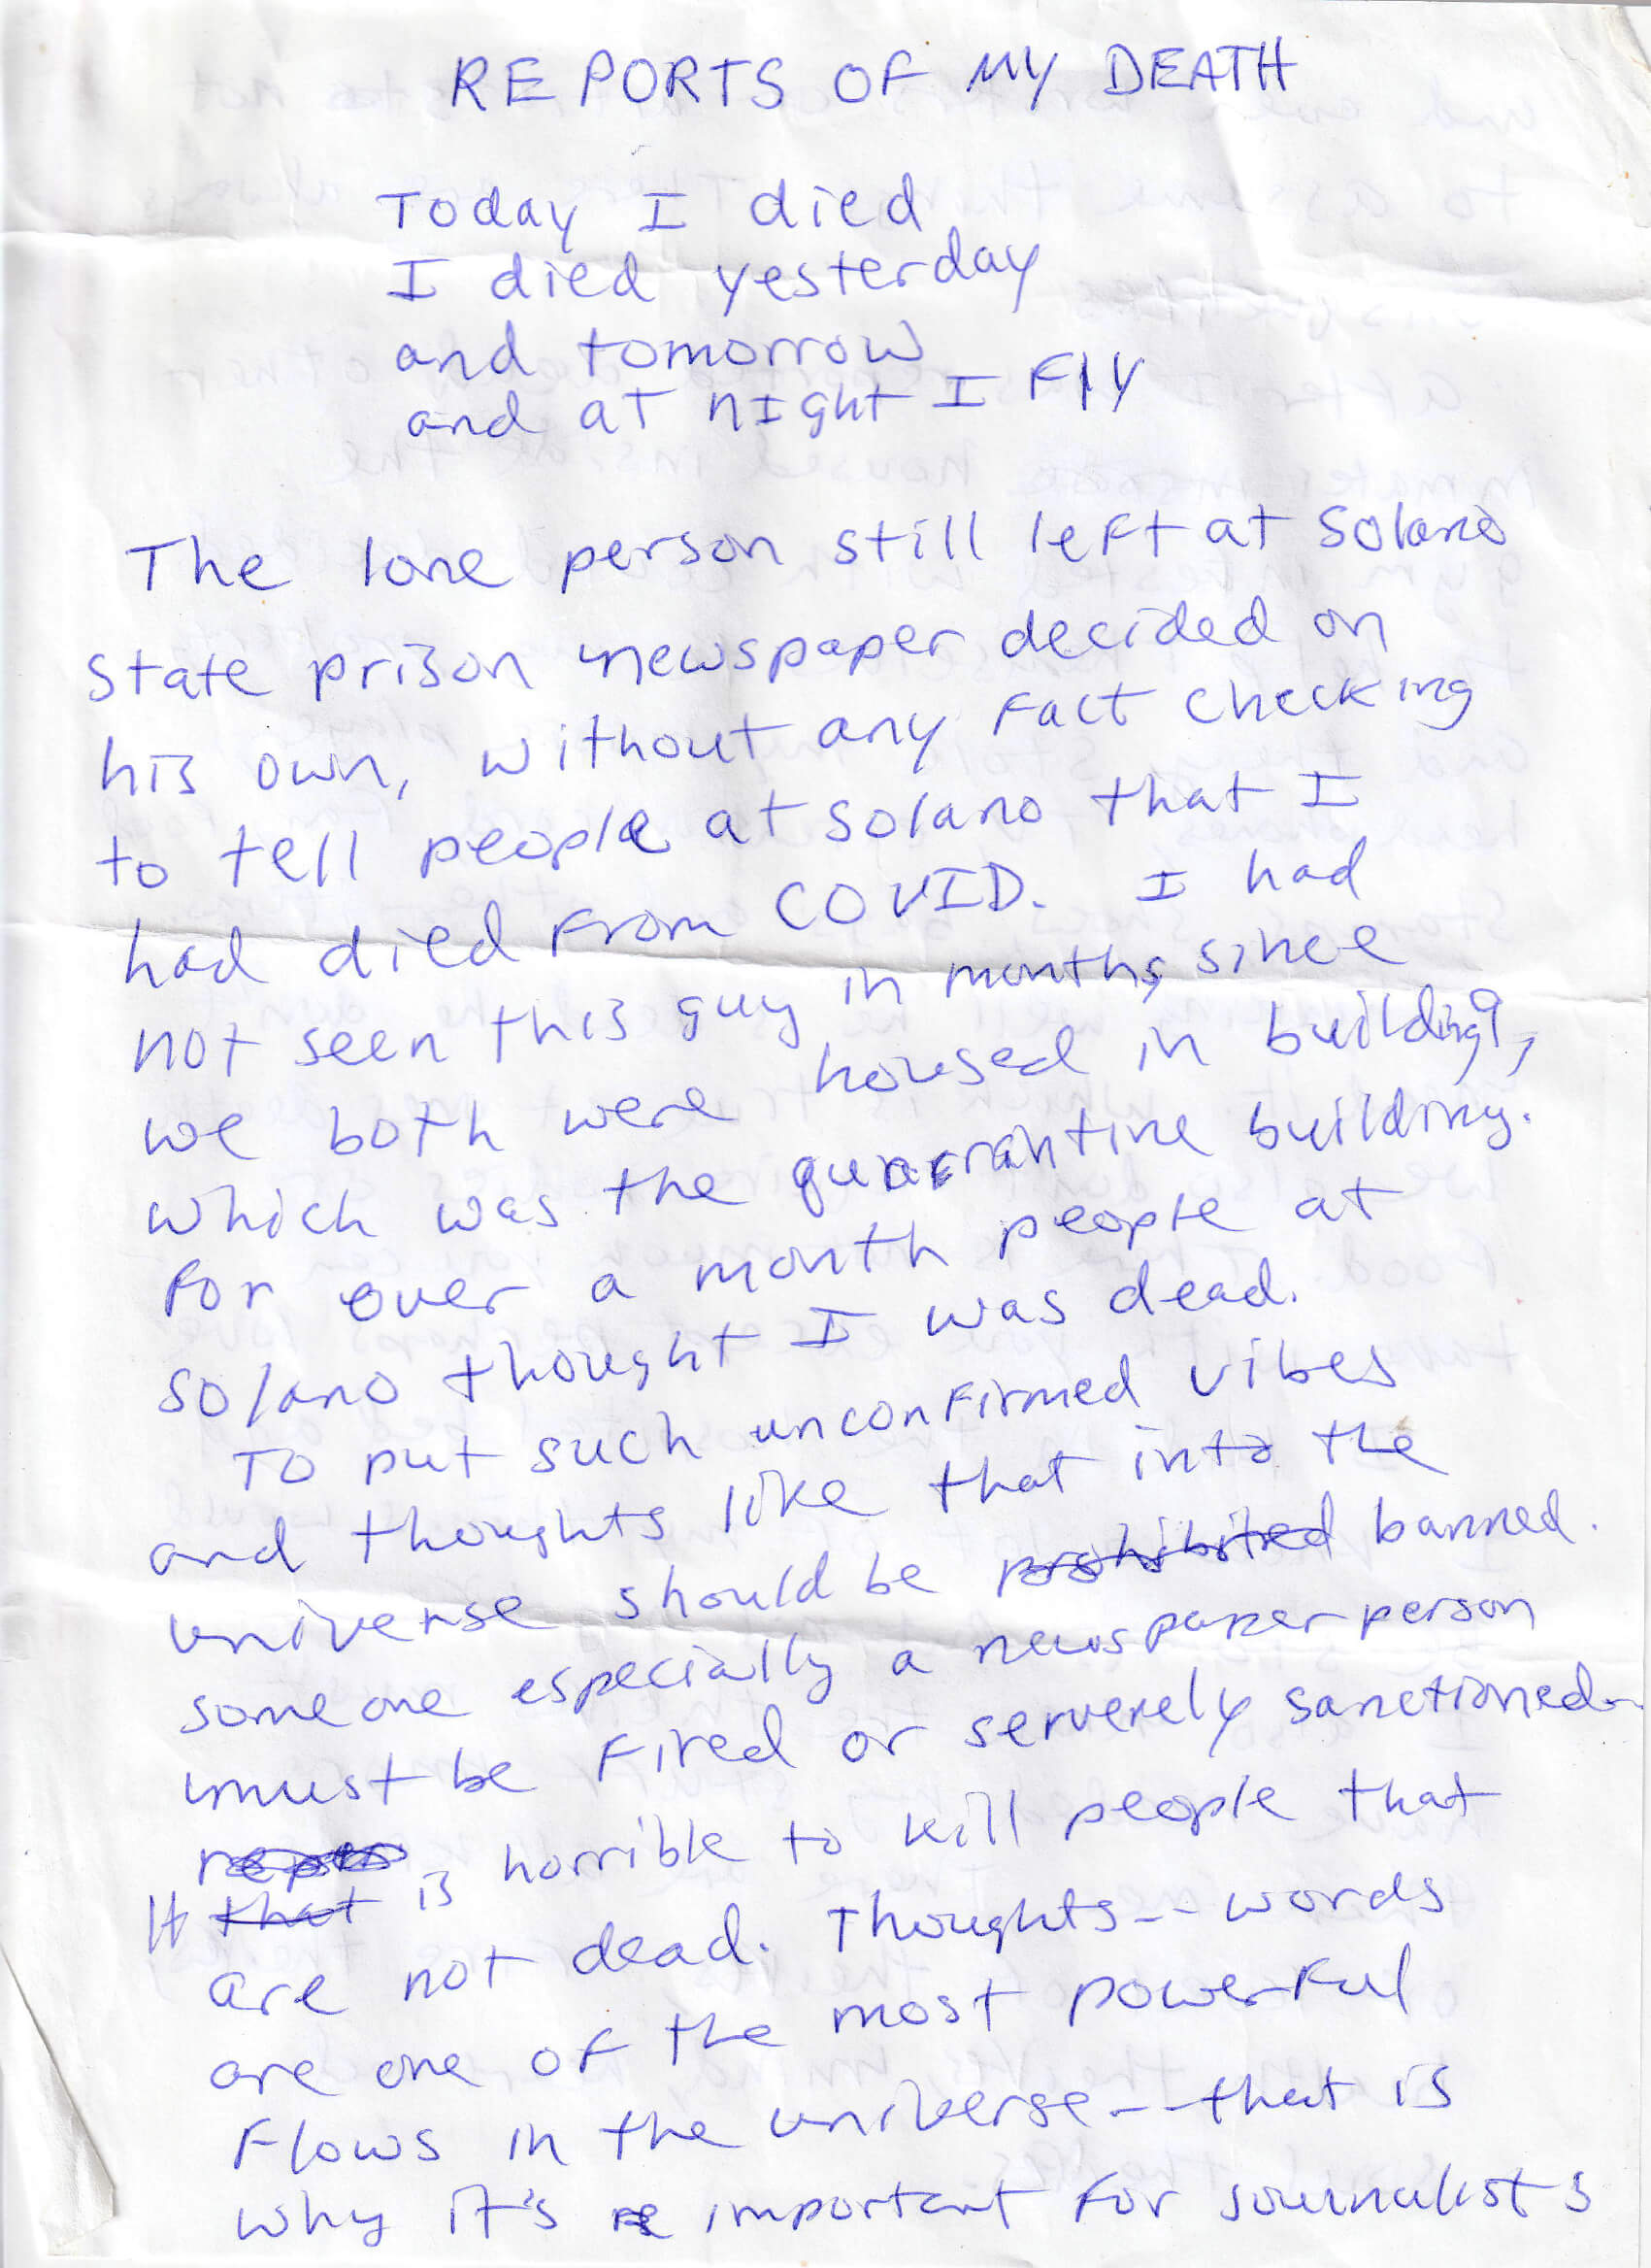 REPORTS OF MY DEATH
Today I died
I died yesterday
and tomorrow
and at night I fly
The lone person still left at Solano
state prison newspaper decided on
his own, without any fact checking
to tell people at solano that I
had died from COVID. I had
not seen this guy in months, since
we both were housed in building 9,
which was the quarrantine building.
For over a month people at
solano thought I was dead.
To put such unconfirmed vibes
and thoughts like that into the
universe should be prohibited banned.
someone especially a newspaper person
must be fired or serverely sanctioned.
It that is horrible to kill people that
are not dead. Thoughts -- words
are one of the most powerful
flows in the universe -- that is
why it's important for journalists